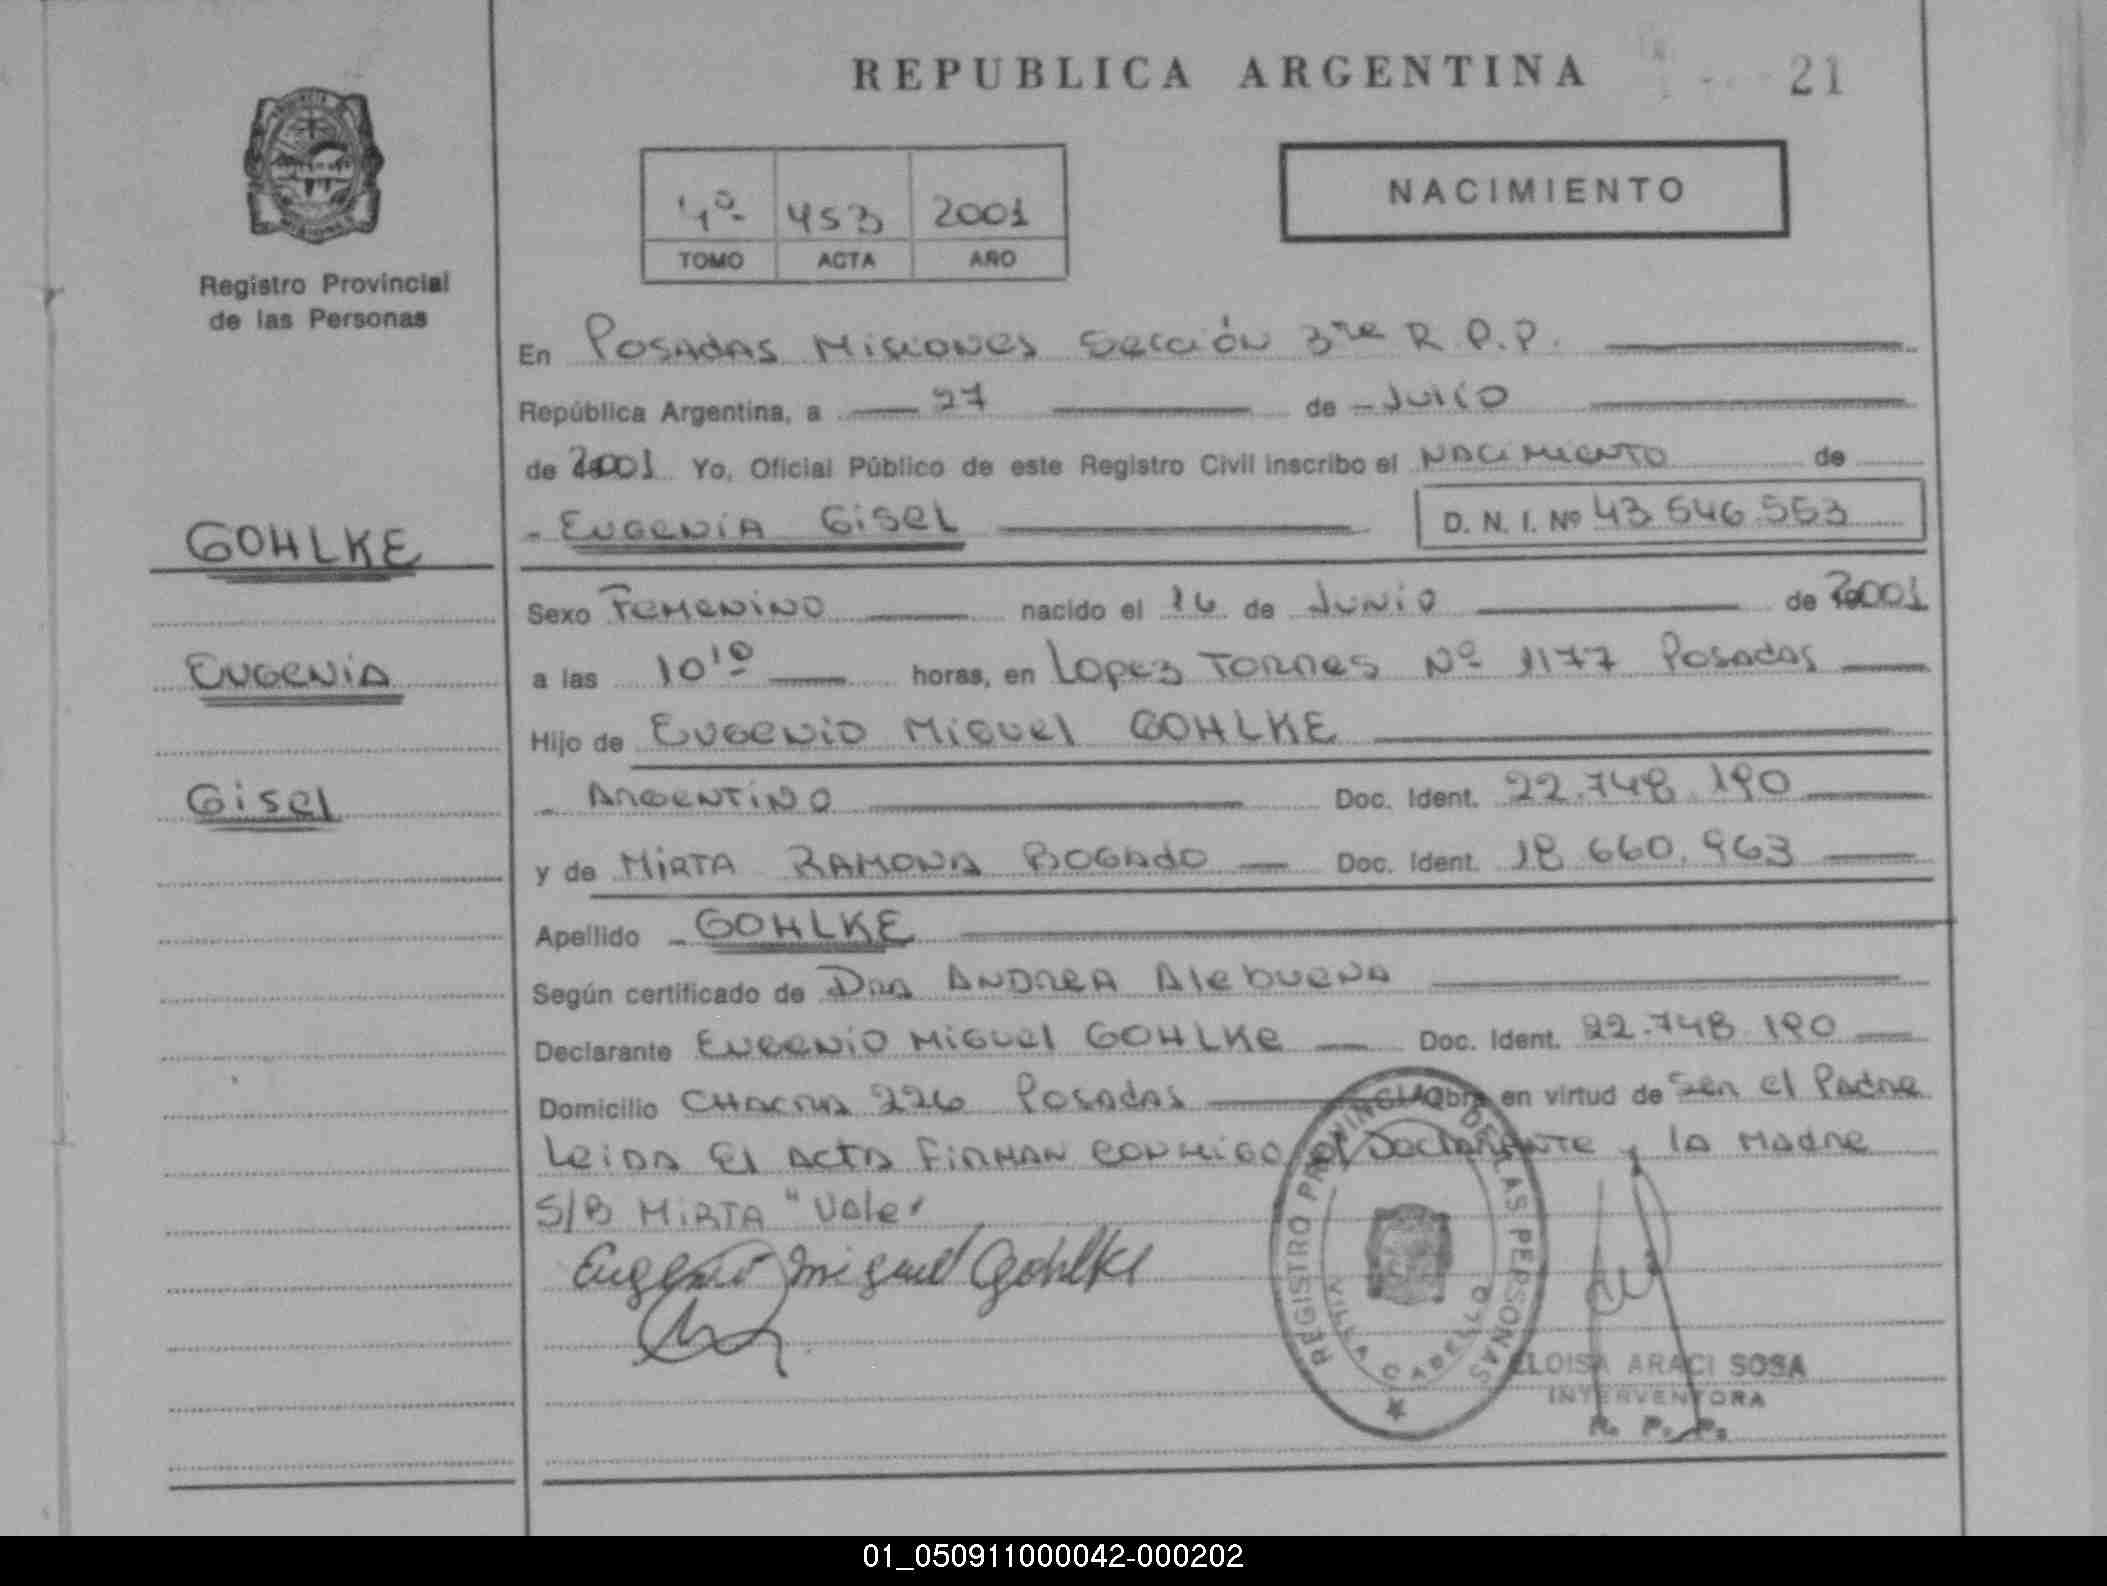 REPUBLICA ARGENTINA
21
4º 453 2001
TOMO ACTA AÑO
NACIMIENTO
Registro Provincial
de las Personas
En Posadas Misiones Sección 3ra R.P.P.
República Argentina, a 27 de Julio
de 2001 Yo, Oficial Público de este Registro Civil inscribo el Nacimiento de
Eugenia Gisel D. N. I. Nº 43.546.553
GOHLKE
Eugenia
Gisel
Sexo Femenino nacido el 16 de Junio de 2001
a las 10¹⁰ horas, en Lopez Torres Nº 1177 Posadas
Hijo de Eugenio Miguel GOHLKE
Argentino Doc. Ident. 22.748.190
y de Mirta Ramona Bogado Doc. Ident. 18.660.963
Apellido GOHLKE
Según certificado de Dra Andrea Alebuena
Declarante Eugenio Miguel GOHLKE Doc. Ident. 22.748.190
Domicilio Chacra 226 Posadas Obra en virtud de Ser el Padre
Leida El Acta Firman conmigo el Declarante y la Madre
S/B Mirta "Vale"
Eugenio Miguel Gohlke
REGISTRO PROVINCIAL DE LAS PERSONAS
VILLA CABELLO
ELOISA ARACI SOSA
INTERVENTORA
R. P. P.
01_050911000042-000202